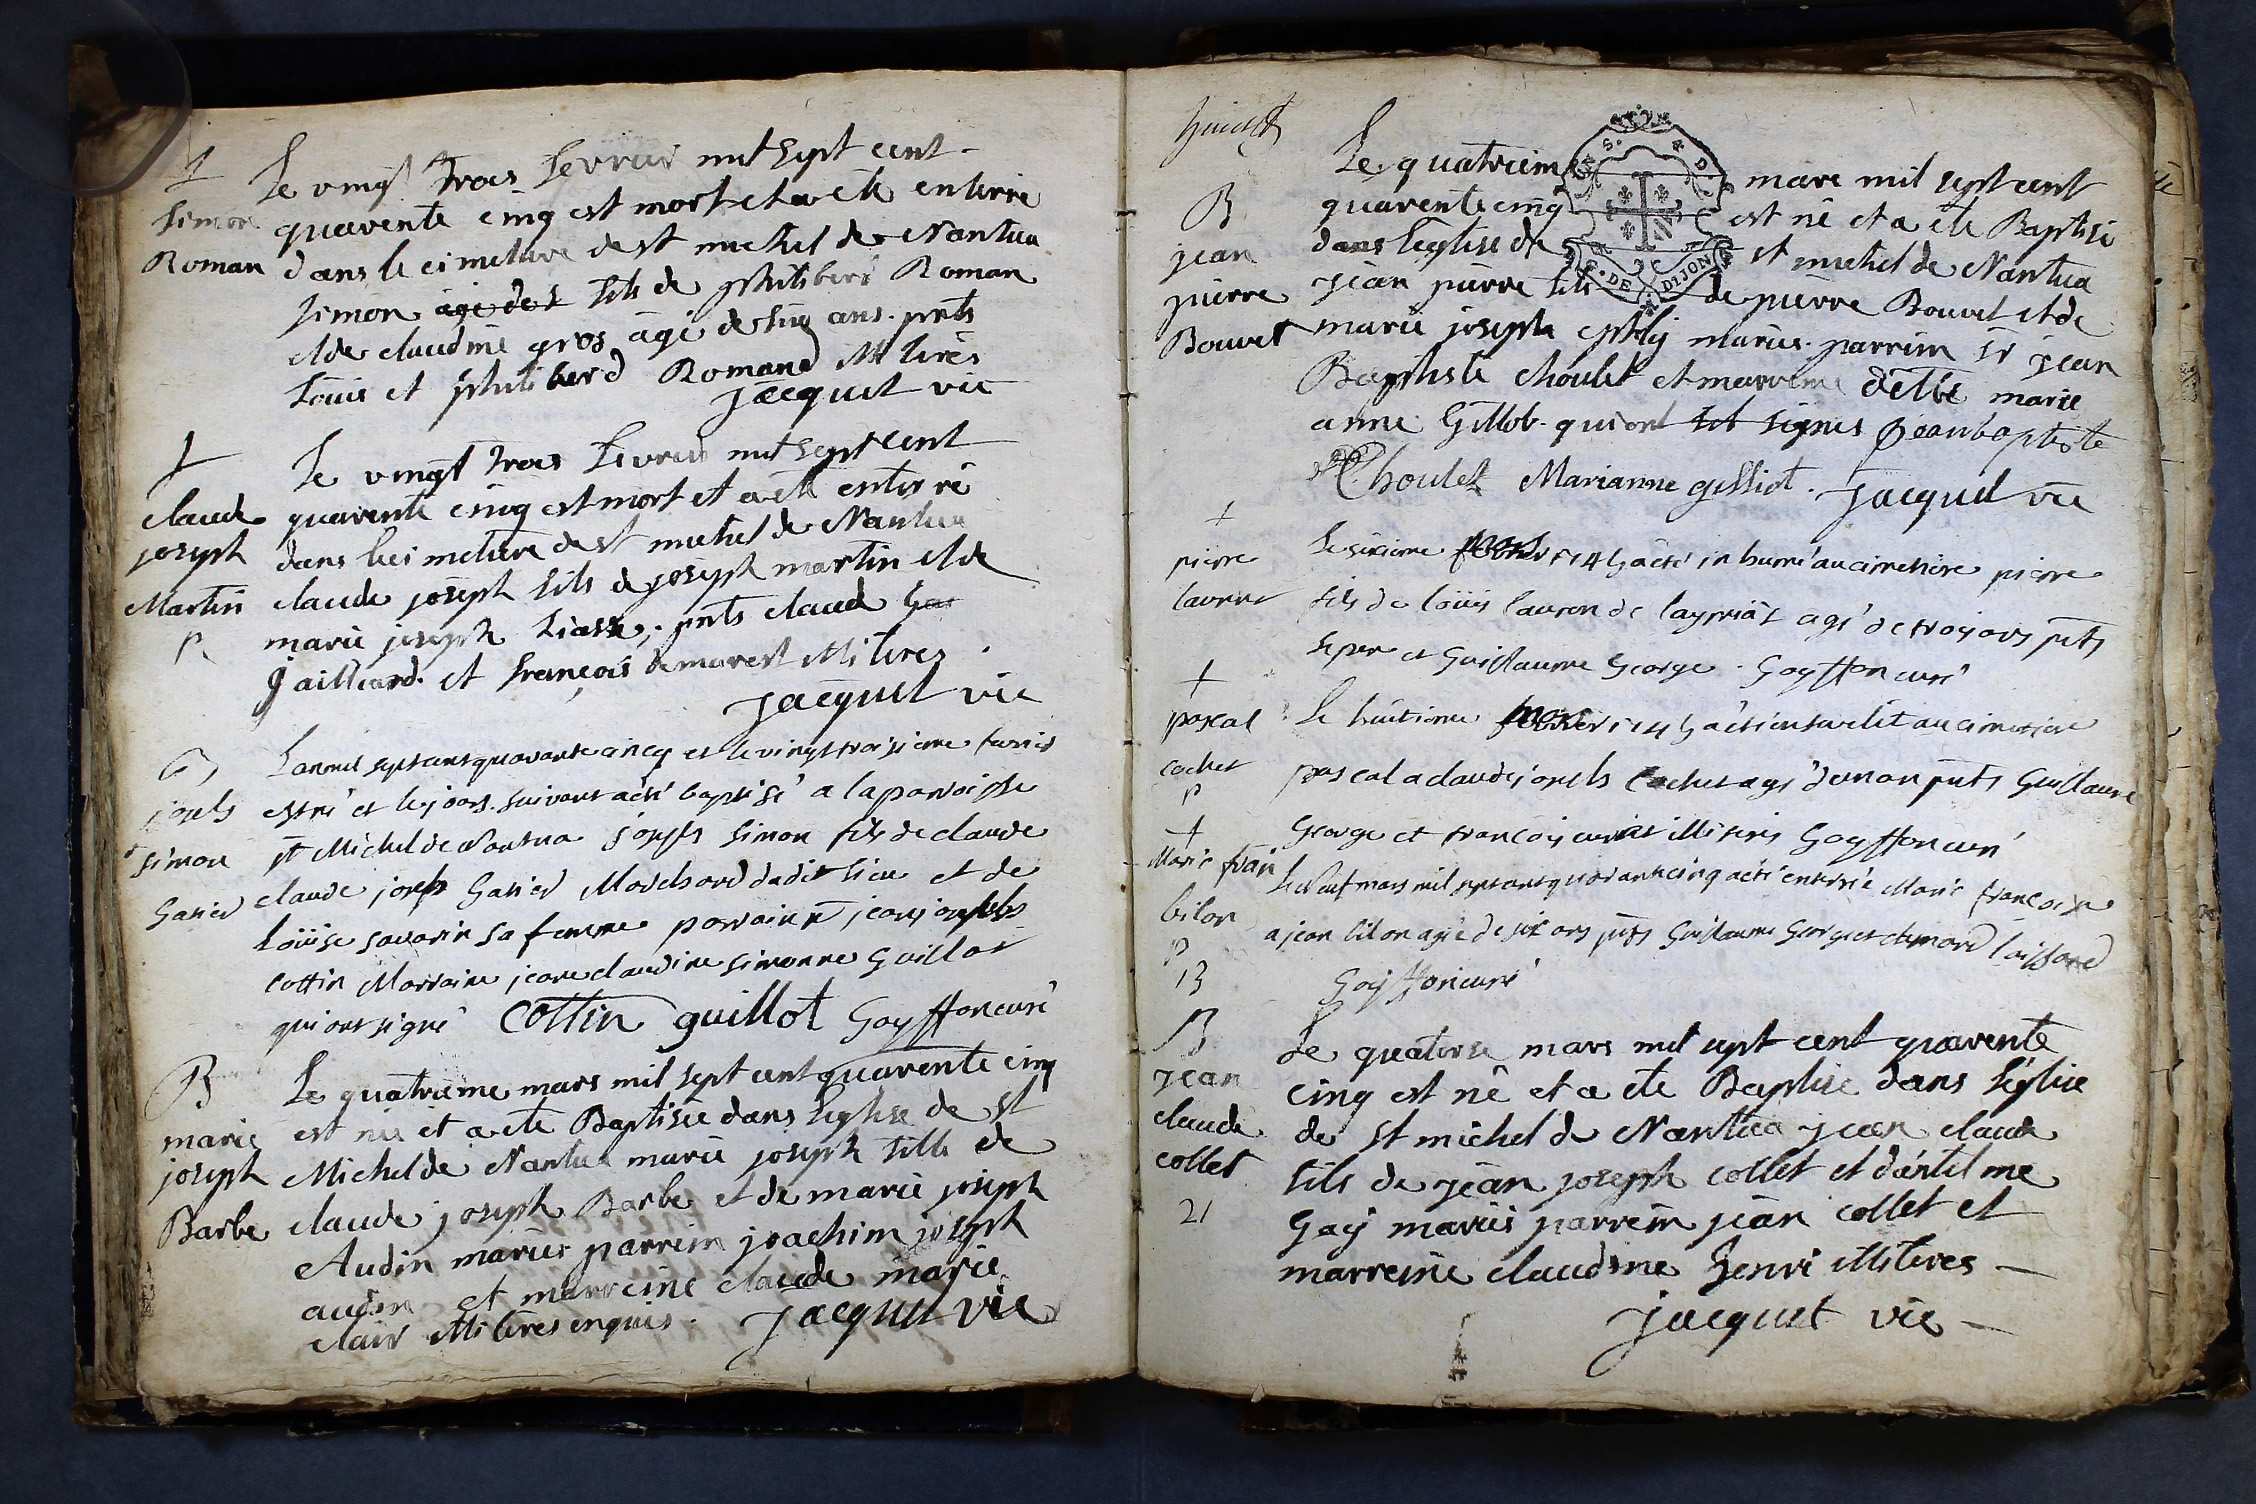 Le vingt trois fevrier mil sept cent
Simon quarente cinq est mort et a ete enterré
Roman dans le cimetiere de st michel de Nantua
simon agé de s fils de philibert Roman
et de claudine gros agé de cinq ans. pnts
Louis et philiberd Romand illiteres
jacquet vic
Le vingt trois fevrier mil sept cent
claude quarente cinq est mort et a ete enterré
joseph dans le cimetiere de st michel de Nantua
Martin claude joseph fils de joseph martin et de
p marie joseph ; pnts claude
gailliard et françois demarest illiteres
jacquet vic
B L'an mil sept cent quarante cincq et le vingt troisieme fevrier
joseph est né et le jour suivant a été baptisé a la parroisse
simon st Michel de Nantua joseph simon fils de claude
claude joseph Marchand dudit lieu et de
Loüise savarin sa femme parrain sr jean joseph
cottin Marraine jeane claudine simonne Guillot
qui ont signé cottin guillot Goyffon curé
B Le quatrieme mars mil sept cent quarente cinq
marie est née et a ete Baptisée dans l'eglise de st
joseph Michel de Nantua marie joseph fille de
Barbe claude joseph Barbe et de marie joseph
Audin mariés parrein joachim joseph
audin et marreine claude marie
clair illiteres enquis. jacquet vic
huict
Le quatrieme mars mil sept cent
B quarente cinq est né et a ete Baptisé
jean dans l'eglise de st michel de Nantua
pierre jean pierre fils de pierre Bouvet et de
Bouvet marie joseph mariés. parrein sr jean
Baptiste choulet et marreine delle marie
anne Gillot qui ont signés Jean baptiste
Choulet Marianne gilliot. jacquet vic
pierre Le sixieme mars 1745 a été inhumé au cimetiere pierre
fils de loüis de agé de trois ans pnts
le pere et Guillaume George. Goyffon curé
pascal Le huitieme mars 1745 a été ensevelit au cimetiere
cochet pascal a claude joseph cochet agé d'un an pnts Guillaume
p George et françois illiteres Goyffon curé
Marie fran Le neuf mars mil sept cent quarante cinq a été enterrée Marie françoise
bilon a jean bilon agée de six ans pnts Guillaume George et
p Goyffon curé
13
B Le quatorze mars mil sept cent quarente
jean cinq est né et a ete Baptise dans l'eglise
claude de st michel de Nantua jean claude
collet fils de jean joseph collet et d'antelme
21 Gay mariés parrein jean collet et
marreine claudine henri illiteres
jacquet vic